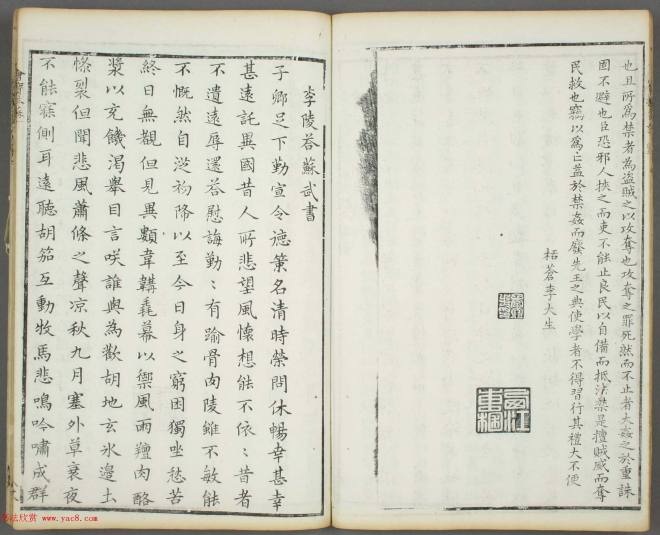 也且所爲禁者為盜賊之以攻奪也攻奪之罪死然而不止者大姦之於重誅
固不避也臣恐邪人挾之而吏不能止良民以自備而抵法禁是擅賊威而奪
民救也竊以爲亡益於禁姦而廢先王之典使學者不得習行其禮大不便
栝蒼李大生
李陵荅蘇武書
子卿足下勤宣令德策名清時榮問休暢幸甚幸
甚遠託異國昔人所悲望風懷想能不依〻昔者
不遺遠辱還荅慰誨勤〻有踰骨肉陵雖不敏能
不慨然自從初降以至今日身之窮困獨坐愁苦
終日無覩但見異類韋韝毳幕以禦風雨羶肉酪
漿以充饑渴舉目言咲誰與為歡胡地玄氷邊土
慘裂但聞悲風蕭條之聲凉秋九月塞外草衰夜
不能寐側耳遠聽胡笳互動牧馬悲鳴吟嘯成群
法欣赏 www.yac8.com